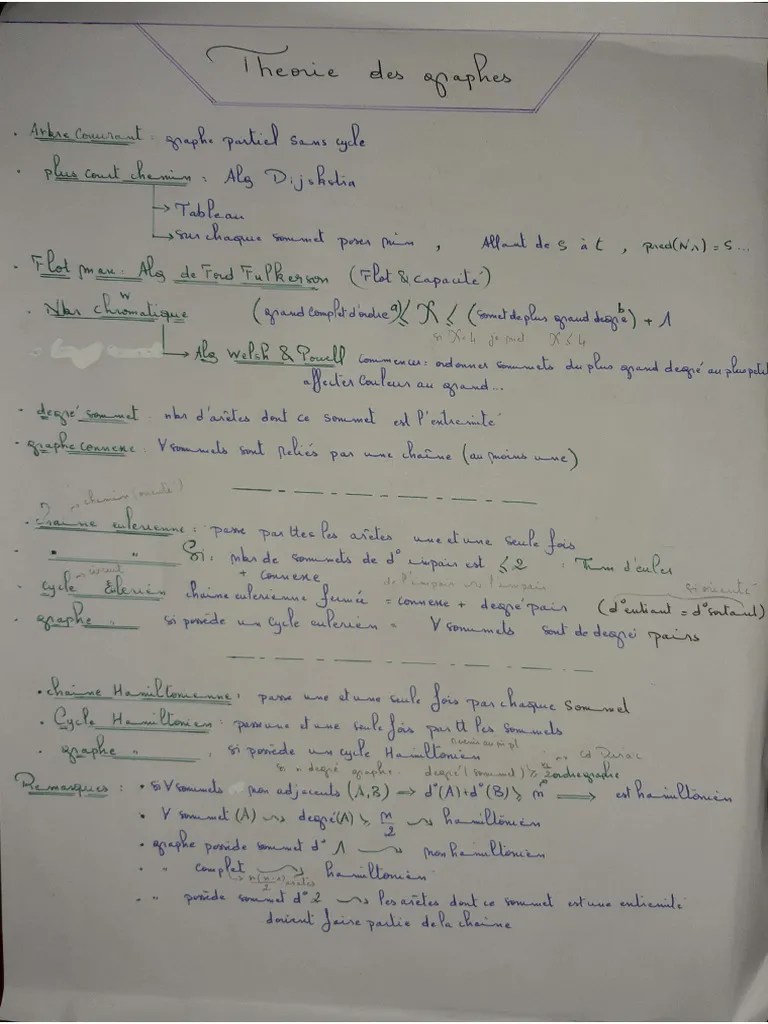 Theorie des graphes
. Arbre couvrant : graphe partiel sans cycle
. plus court chemin : Alg Dijskstra
→ Tableau
→ sur chaque sommet poser min , Allant de s à t , pred(N.1) = S ...
. Flot max : Alg de Ford Fulkerson (Flot & capacité)
. Nbr chromatique (grand complet d'ordre a) ≤ X ≤ (somet de plus grand degré b) + 1
si X=4 je peut X ≤ 4
→ Alg Welsh & Powell commencer : ordonner sommets du plus grand degré au plus petit
affecter couleur au grand...
. degré sommet : nbr d'arêtes dont ce sommet est l'extremité
. graphe connexe : ∀ sommets sont reliés par une chaîne (au moins une)
chemin (orienté)
. chaine eulerienne : passe par ttes les arêtes une et une seule fois
. " " Si : nbr de sommets de d° impair est ≤ 2 : Thm d'euler
+ connexe
circuit de l'impair vers l'impair si orienté
cycle Eulerien chaine eulerienne fermée = connexe + degré pair (d° entrant = d° sortant)
. graphe " si possède un cycle eulerien = ∀ sommets sont de degré pairs
. chaine Hamiltonienne : passe une et une seule fois par chaque sommet
. Cycle Hamiltonien : passe une et une seule fois par tt les sommets
. graphe " , si possède un cycle Hamiltonien
si degré graphe degré (sommet) ≥ ordre graphe
Remarques : . si ∀ sommets non adjacents (A,B) ⇒ d°(A)+d°(B) ≥ n ⟹ est hamiltonien
. ∀ sommet (A) degré(A) ≥ n/2 hamiltonien
. graphe possède sommet d° 1 non hamiltonien
. " complet hamiltonien
arêtes
. " possède sommet d° 2 les arêtes dont ce sommet est une extremité
doivent faire partie de la chaine